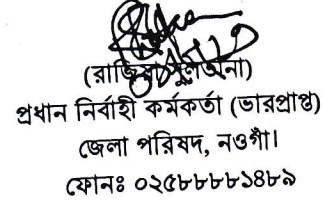 (রাজিয়া সুলতানা)
প্রধান নির্বাহী কর্মকর্তা (ভারপ্রাপ্ত)
জেলা পরিষদ, নওগাঁ।
ফোনঃ ০২৫৮৮৮৮১৪৮৯